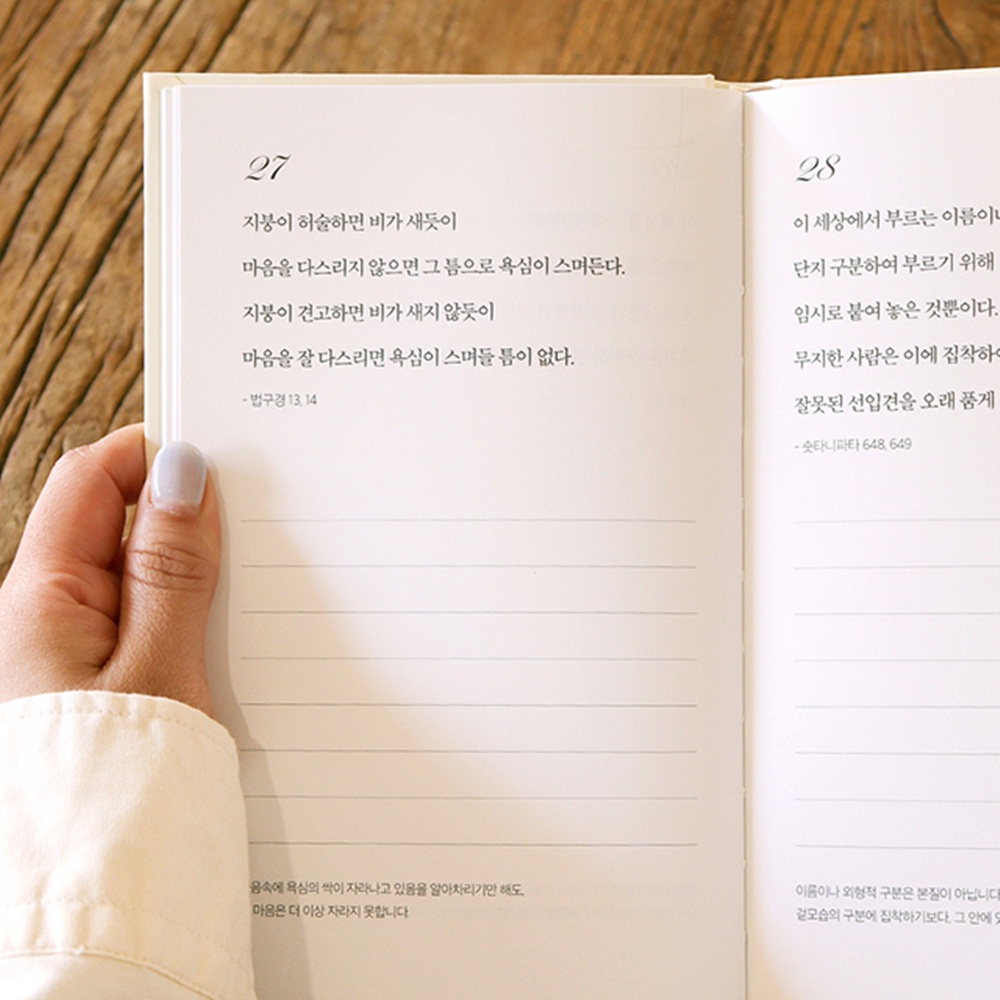 27
지붕이 허술하면 비가 새듯이
마음을 다스리지 않으면 그 틈으로 욕심이 스며든다.
지붕이 견고하면 비가 새지 않듯이
마음을 잘 다스리면 욕심이 스며들 틈이 없다.
- 법구경 13, 14
음속에 욕심의 싹이 자라나고 있음을 알아차리기만 해도,
마음은 더 이상 자라지 못합니다
28
이 세상에서 부르는 이름이
단지 구분하여 부르기 위해
임시로 붙여 놓은 것뿐이다.
무지한 사람은 이에 집착하
잘못된 선입견을 오래 품게
- 숫타니파타 648, 649
이름이나 외형적 구분은 본질이 아닙니다
겉모습의 구분에 집착하기보다, 그 안에